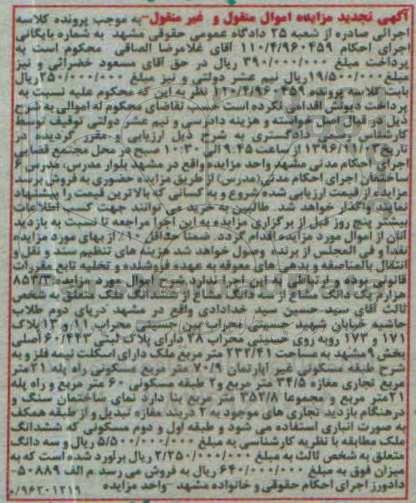 آگهی تجدید مزایده اموال منقول و غیر منقول-به موجب پرونده کلاسه
اجرائی صادره از شعبه ۲۵ دادگاه عمومی حقوقی مشهد به شماره بایگانی
اجرای احکام ۱۱۰/۴/۹۶۰۴۵۹ آقای غلامرضا الصافی محکوم است به
پرداخت مبلغ ۳۹۰/۰۰۰/۰۰۰ ریال در حق آقای مسعود خضرائی و نیز
مبلغ ۱۹/۵۰۰/۰۰۰ ریال نیم عشر دولتی و نیز مبلغ ۲۵۰/۰۰۰/۰۰۰ ریال
بابت کلاسه پرونده ۱۲۰/۴/۹۶۰۴۵۹ نظر به این که محکوم علیه نسبت به
پرداخت دیونش اقدامی نکرده است حسب تقاضای محکوم له اموالی به شرح
ذیل در قبال اصل خواسته و هزینه دادرسی و نیم عشر دولتی توقیف توسط
کارشناس رسمی دادگستری به شرح ذیل ارزیابی و مقرر گردیده در
تاریخ ۱۳۹۶/۱۱/۰۳ از ساعت ۹:۴۵ الی ۱۰:۳۰ صبح در محل مجتمع قضایی
اجرای احکام مدنی مشهد واحد مزایده واقع در مشهد بلوار مدرس، مدرس ۶
ساختمان اجرای احکام مدنی(مدرس) از طریق مزایده حضوری به فروش برسد
مزایده از قیمت ارزیابی شده شروع و به کسانی که بالاترین قیمت را پیشنهاد
نمایند واگذار خواهد شد. طالبین به خرید می توانند جهت کسب اطلاعات
بیشتر پنج روز قبل از برگزاری مزایده به این اجرا مراجعه تا نسبت به بازدید
آنان از اموال مورد مزایده اقدام گردد. ضمنا حداقل ۱۰٪ از بهای مورد مزایده
نقدا و فی المجلس از برنده وصول خواهد شد هزینه های تنظیم سند و نقل و
انتقال بالمناصفه و بدهی های معوقه به عهده فروشنده و تخلیه تابع مقررات
قانونی بوده و ارتباطی به این اجرا ندارد شرح اموال مورد مزایده:
هزارم یک دانگ مشاع از سه دانگ مشاع از ششدانگ ملک متعلق به شخص
ثالث آقای سید حسین سید خدادادی واقع در مشهد دریای دوم طلاب
حاشیه خیابان شهید حسینی محراب بین حسینی محراب ۱۱ و ۱۳ پلاک
۱۷۱ و ۱۷۳ روبه روی حسینی محراب ۲۸ دارای پلاک ثبتی ۶۰۴۴۳ اصلی
بخش ۹ مشهد به مساحت ۲۳۲/۴۱ متر مربع ملک دارای اسکلت نیمه فلز و به
شرح طبقه مسکونی غیر آپارتمان ۷۰/۹ متر مربع مسکونی راه پله ۲۱ متر
مربع تجاری مغازه ۳۴/۵ متر مربع و ۲ طبقه مسکونی ۶۰ متر مربع و راه پله
۲۱ متر مربع و مجموعا ۳۵۲/۸ متر مربع بنا دارد نمای ساختمان سنگ و
در هنگام بازدید تجاری های موجود به ۲ دربند مغازه تبدیل و از طبقه همکف
به صورت انباری استفاده می شود و طبقه اول و دوم مسکونی که ششدانگ
ملک مطابقه با نظریه کارشناسی به مبلغ ۵/۵۰۰/۰۰۰/۰۰۰ ریال و سه دانگ
متعلق به شخص ثالث به مبلغ ۲/۷۵۰/۰۰۰/۰۰۰ ریال برآورد شده است که به
میزان فوق به مبلغ ۶۴۰/۰۰۰/۰۰۰ ریال به فروش می رسد. م الف ۵۰۸۸۹
دادورز اجرای احکام حقوقی و خانواده مشهد -واحد مزایده